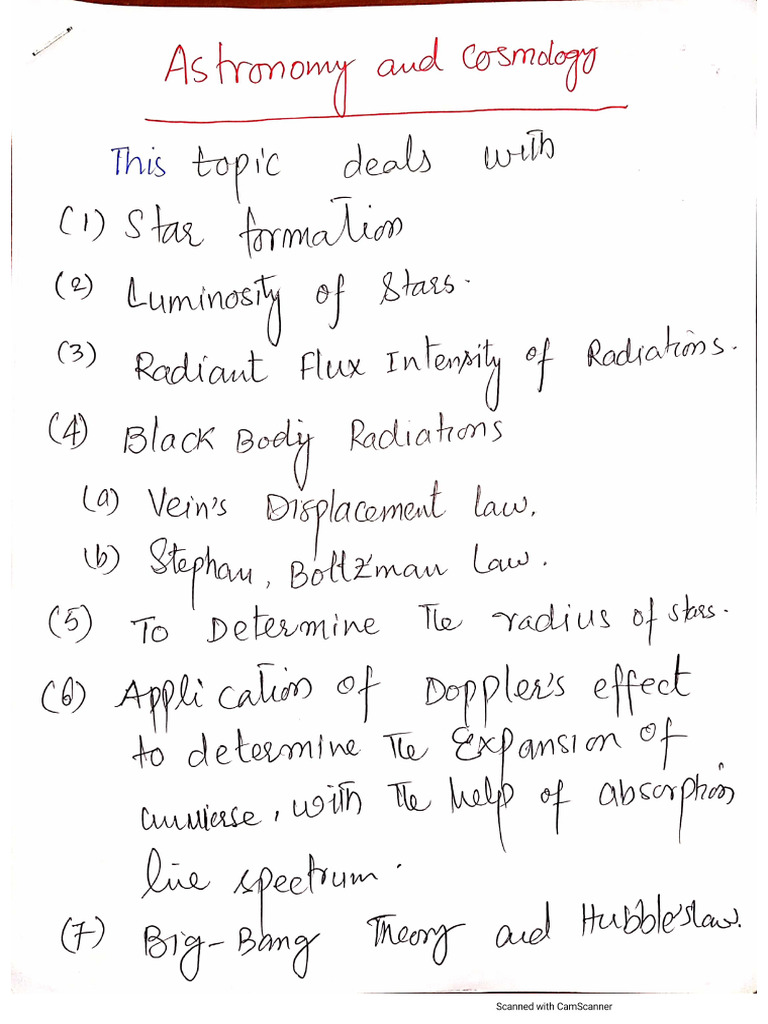 Astronomy and Cosmology
This topic deals with
(1) Star formation
(2) Luminosity of Stars.
(3) Radiant Flux Intensity of Radiations.
(4) Black Body Radiations
(a) Vein's Displacement law.
(b) Stephan, Boltzman Law.
(5) To Determine the radius of stars.
(6) Application of Doppler's effect
to determine the Expansion of
universe, with the help of absorption
line spectrum.
(7) Big-Bang Theory and Hubble's law.
Scanned with CamScanner